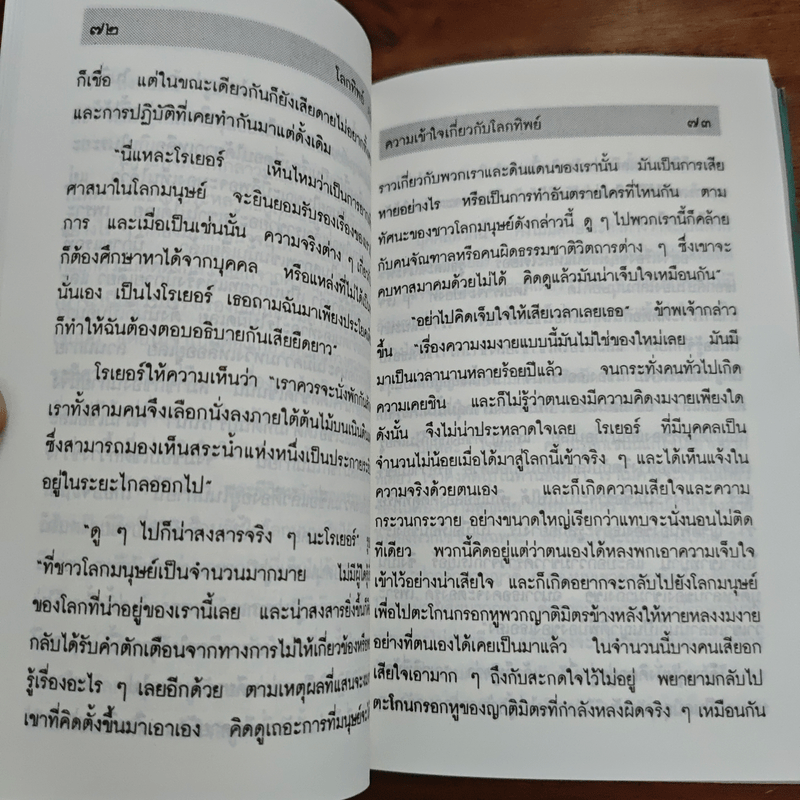 ๗๒
โลกทิพย์
ก็เชื่อ แต่ในขณะเดียวกันก็ยังเสียดายไม่อยาก
และการปฏิบัติที่เคยทำกันมาแต่ดั้งเดิม
"นี่แหละโรเยอร์ เห็นไหมว่าเป็นการยาก
ศาสนาในโลกมนุษย์ จะยินยอมรับรองเรื่องของ
การ และเมื่อเป็นเช่นนั้น ความจริงต่าง ๆ
ก็ต้องศึกษาหาได้จากบุคคล หรือแหล่งที่ไม่ได้
นั่นเอง เป็นไงโรเยอร์ เธอถามฉันมาเพียงประโยค
ก็ทำให้ฉันต้องตอบอธิบายกันเสียยืดยาว"
โรเยอร์ให้ความเห็นว่า "เราควรจะนั่งพักกัน
เราทั้งสามคนจึงเลือกนั่งลงภายใต้ต้นไม้บนเนินดิน
ซึ่งสามารถมองเห็นสระน้ำแห่งหนึ่งเป็นประกาย
อยู่ในระยะไกลออกไป"
"ดู ๆ ไปก็น่าสงสารจริง ๆ นะโรเยอร์"
"ที่ชาวโลกมนุษย์เป็นจำนวนมากมาย ไม่มีผู้ใด
ของโลกที่น่าอยู่ของเรานี้เลย และน่าสงสารยิ่งขึ้น
กลับได้รับคำตักเตือนจากทางการไม่ให้เกี่ยวข้อง
รู้เรื่องอะไร ๆ เลยอีกด้วย ตามเหตุผลที่แสน
เขาที่คิดตั้งขึ้นมาเอาเอง คิดดูเถอะการที่มนุษย์
ความเข้าใจเกี่ยวกับโลกทิพย์
๗๓
ราวเกี่ยวกับพวกเราและดินแดนของเรานั้น มันเป็นการเสีย
หายอย่างไร หรือเป็นการทำอันตรายใครที่ไหนกัน ตาม
ทัศนะของชาวโลกมนุษย์ดังกล่าวนี้ ดู ๆ ไปพวกเรานี้ก็คล้าย
กับคนจัณฑาลหรือคนผิดธรรมชาติวิตถารต่าง ๆ ซึ่งเขาจะ
คบหาสมาคมด้วยไม่ได้ คิดดูแล้วมันน่าเจ็บใจเหมือนกัน"
"อย่าไปคิดเจ็บใจให้เสียเวลาเลยเธอ" ข้าพเจ้ากล่าว
ขึ้น "เรื่องความงมงายแบบนี้มันไม่ใช่ของใหม่เลย มันมี
มาเป็นเวลานานหลายร้อยปีแล้ว จนกระทั่งคนทั่วไปเกิด
ความเคยชิน และก็ไม่รู้ว่าตนเองมีความคิดงมงายเพียงใด
ดังนั้น จึงไม่น่าประหลาดใจเลย โรเยอร์ ที่มีบุคคลเป็น
จำนวนไม่น้อยเมื่อได้มาสู่โลกนี้เข้าจริง ๆ และได้เห็นแจ้งใน
ความจริงด้วยตนเอง และก็เกิดความเสียใจและความ
กระวนกระวาย อย่างขนาดใหญ่เรียกว่าแทบจะนั่งนอนไม่ติด
ทีเดียว พวกนี้คิดอยู่แต่ว่าตนเองได้หลงพกเอาความเจ็บใจ
เข้าไว้อย่างน่าเสียใจ และก็เกิดอยากจะกลับไปยังโลกมนุษย์
เพื่อไปตะโกนกรอกหูพวกญาติมิตรข้างหลังให้หายหลงงมงาย
อย่างที่ตนเองได้เคยเป็นมาแล้ว ในจำนวนนี้บางคนเสียอก
เสียใจเอามาก ๆ ถึงกับสะกดใจไว้ไม่อยู่ พยายามกลับไป
ตะโกนกรอกหูของญาติมิตรที่กำลังหลงผิดจริง ๆ เหมือนกัน